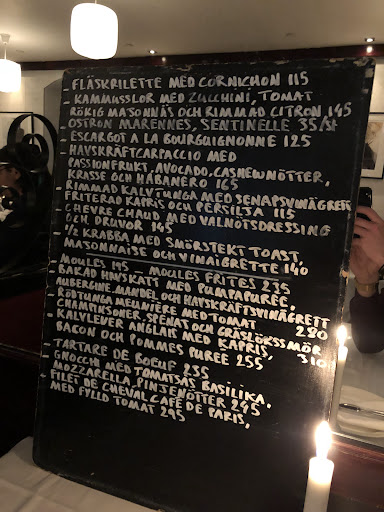 - FLÄSKRILETTE MED CORNICHON 115
- KAMMUSSLOR MED ZUCCHINI, TOMAT
RÖKIG MAJONNÄS OCH RIMMAD CITRON 145
- OSTRON MARENNES, SENTINELLE 35/ST
- ESCARGOT A LA BOURGUIGNONNE 125
- HAVSKRÄFTCARPACCIO MED
PASSIONFRUKT, AVOCADO, CASHEWNÖTTER,
KRASSE OCH HABANERO 165
- RIMMAD KALVTUNGA MED SENAPSVINÄGRETT
FRITERAD KAPRIS OCH PERSILJA 115
- CHEVRE CHAUD MED VALNÖTSDRESSING
OCH DRUVOR 145
- ½ KRABBA MED SMÖRSTEKT TOAST,
MAJONNAISE OCH VINAIGRETTE 140
- MOULES 145 - MOULES FRITES 235
- BAKAD HAVSKATT MED PUMPAPURÉE,
AUBERGINE, MANDEL OCH HAVSKRÄFTSVINÄGRETT
- RÖDTUNGA MEUNIERE MED TOMAT 280
CHAMPINJONER, SPENAT OCH GRÄSLÖKSSMÖR
- KALVLEVER ANGLAIS MED KAPRIS, 310
BACON OCH POMMES PUREE 255
- TARTARE DE BOEUF 235
- GNOCCHI MED TOMATSÅS BASILIKA,
MOZZARELLA, PINJENÖTTER 245
- FILET DE CHEVAL CAFÉ DE PARIS,
MED FYLLD TOMAT 295